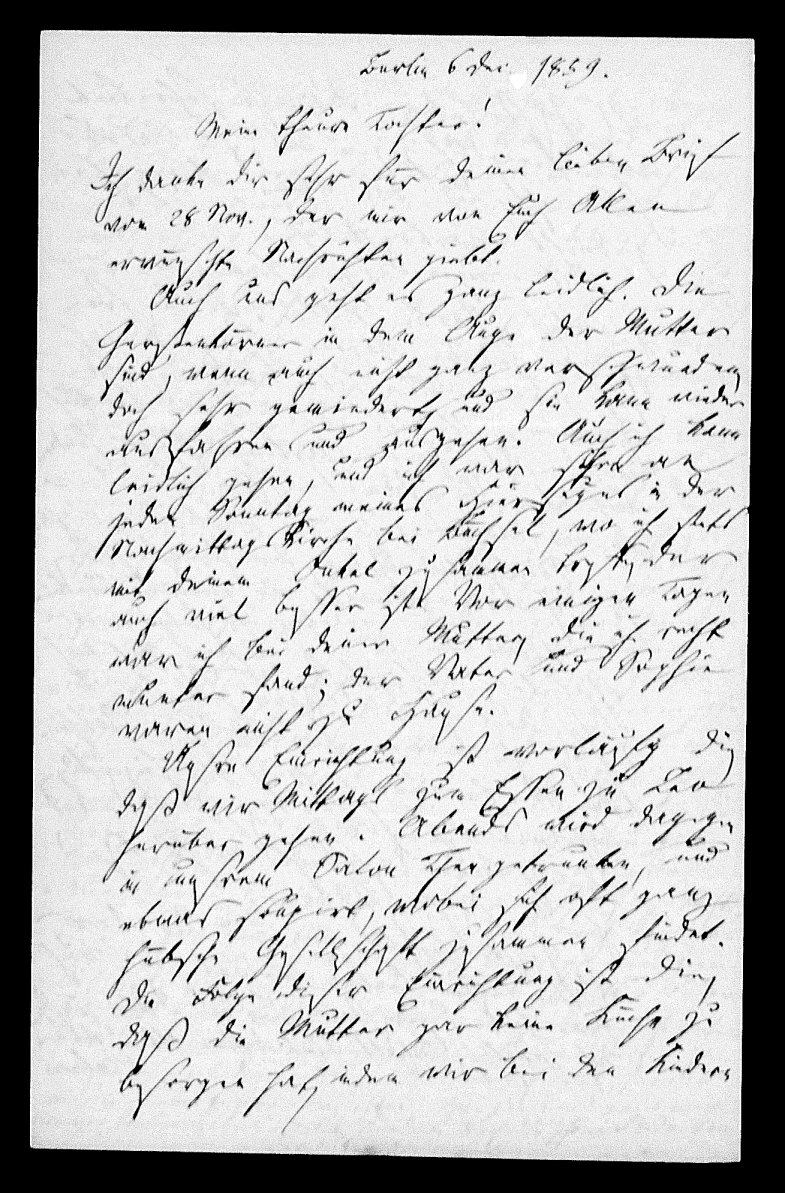 Berlin 6 Dez. 1859.
Meine theure Tochter!
Ich danke dir sehr für deinen lieben Brief
vom 28 Nov., der mir von Euch Allen
erwünschte Nachrichten giebt.
Auch uns geht es ganz leidlich. Die
Gerstenkörner in dem Auge der Mutter
sind, wenn auch nicht ganz verschwunden,
doch sehr gemindert, und sie kann wieder
ausfahren und ausgehen. Auch ich kann
leidlich gehen, und ich war schon an
jedem Sonntag meines Hierseyns in der
Nachmittags Kirche bei Büchsel, wo ich stets
mit deinem Onkel zusammen, der
auch viel besser ist. Vor einigen Tagen
war ich bei deiner Mutter, die ich recht
munter fand; der Vater und Sophie
waren nicht zu Hause.
Unsre Einrichtung ist vorläufig die,
daß wir Mittags zum Essen zu Leo
herüber gehen. Abends wird dagegen
in unsrem Salon Thee getrunken, und
etwas soupirt, wobei sich oft ganz
hübsche Gesellschaft zusammen findet.
Die Folge dieser Einrichtung ist die,
daß die Mutter gar keine Küche zu
besorgen hat, indem wir bei den Kindern